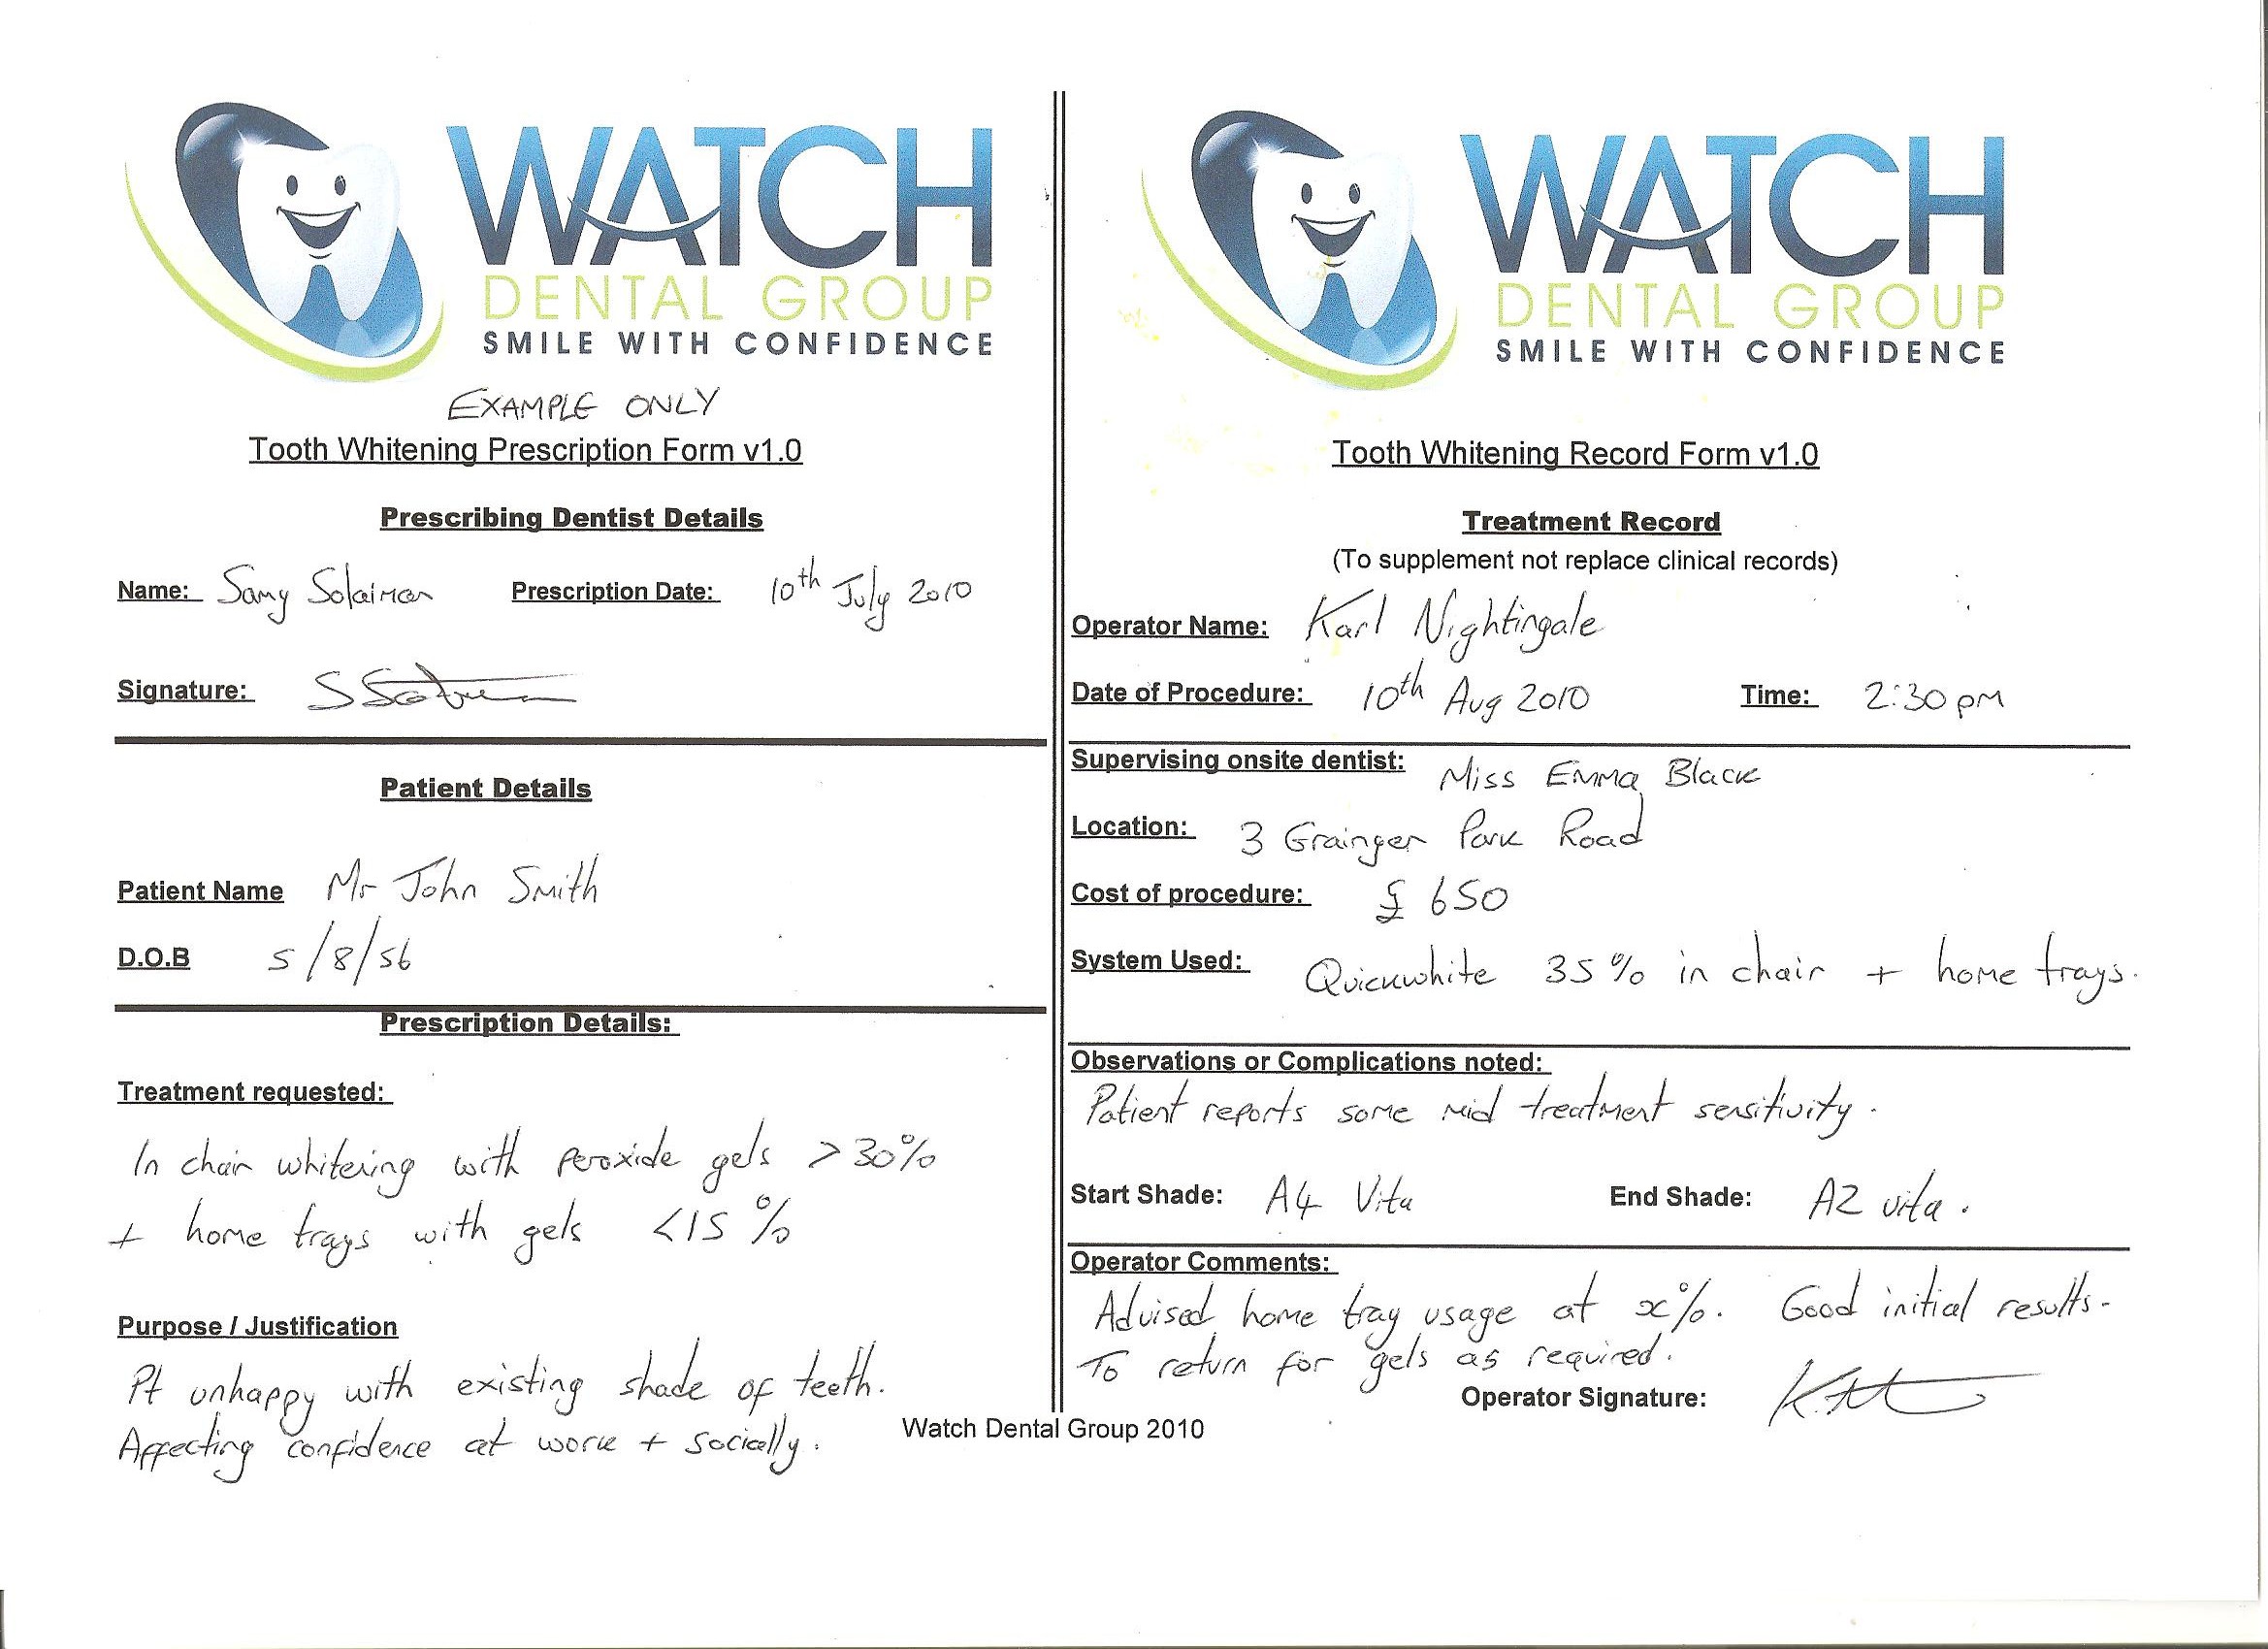 WATCH
DENTAL GROUP
SMILE WITH CONFIDENCE
EXAMPLE ONLY
Tooth Whitening Prescription Form v1.0
Prescribing Dentist Details
Name: Samy Solaiman Prescription Date: 10th July 2010
Signature:
Patient Details
Patient Name Mr John Smith
D.O.B 5/8/56
Prescription Details:
Treatment requested:
In chair whitening with peroxide gels >30%
+ home trays with gels <15%
Purpose / Justification
Pt unhappy with existing shade of teeth.
Affecting confidence at work + socially.
WATCH
DENTAL GROUP
SMILE WITH CONFIDENCE
Tooth Whitening Record Form v1.0
Treatment Record
(To supplement not replace clinical records)
Operator Name: Karl Nightingale
Date of Procedure: 10th Aug 2010 Time: 2:30pm
Supervising onsite dentist: Miss Emma Black
Location: 3 Grainger Park Road
Cost of procedure: £650
System Used: Quickwhite 35% in chair + home trays.
Observations or Complications noted:
Patient reports some mid treatment sensitivity.
Start Shade: A4 Vita End Shade: A2 vita.
Operator Comments:
Advised home tray usage at x%. Good initial results.
To return for gels as required.
Operator Signature:
Watch Dental Group 2010